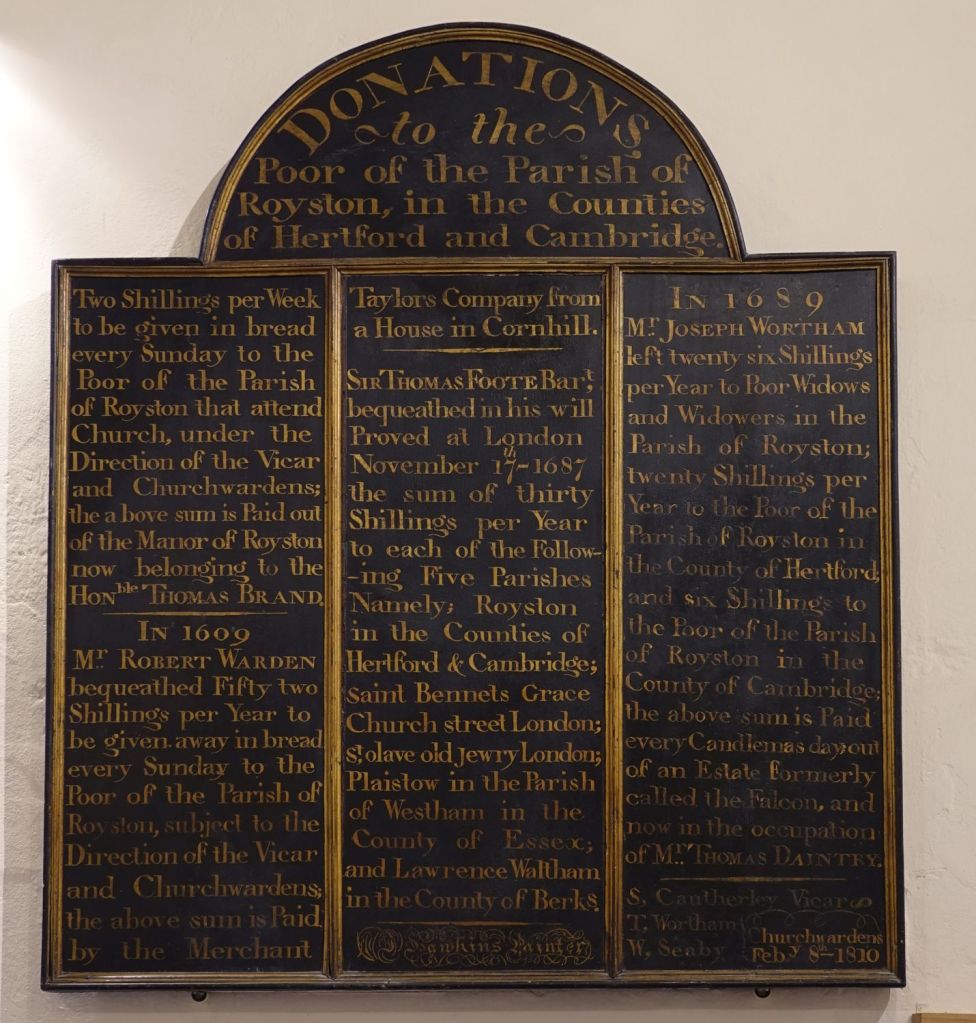 DONATIONS
to the
Poor of the Parish of
Royston, in the Counties
of Hertford and Cambridge.
Two Shillings per Week
to be given in bread
every Sunday to the
Poor of the Parish
of Royston that attend
Church, under the
Direction of the Vicar
and Churchwardens;
the above sum is Paid out
of the Manor of Royston
now belonging to the
Honble THOMAS BRAND.
IN 1609
Mr. ROBERT WARDEN
bequeathed Fifty two
Shillings per Year to
be given away in bread
every Sunday to the
Poor of the Parish of
Royston, subject to the
Direction of the Vicar
and Churchwardens;
the above sum is Paid
by the Merchant
Taylors Company from
a House in Cornhill.
SIR THOMAS FOOTE Bart.
bequeathed in his will
Proved at London
November 17th-1687
the sum of thirty
Shillings per Year
to each of the Follow-
-ing Five Parishes
Namely; Royston
in the Counties of
Hertford & Cambridge;
saint Bennets Grace
Church street London;
St. olave old Jewry London;
Plaistow in the Parish
of Westham in the
County of Essex;
and Lawrence Waltham
in the County of Berks.
Hawkins Painter
IN 1689
Mr. JOSEPH WORTHAM
left twenty six Shillings
per Year to Poor Widows
and Widowers in the
Parish of Royston;
twenty Shillings per
Year to the Poor of the
Parish of Royston in
the County of Hertford;
and six Shillings to
the Poor of the Parish
of Royston in the
County of Cambridge;
the above sum is Paid
every Candlemas day; out
of an Estate formerly
called the Falcon, and
now in the occupation
of Mr. THOMAS DAINTRY.
S, Cautherley Vicar
T, Wortham
W, Seaby
Churchwardens
Feby 8th 1810